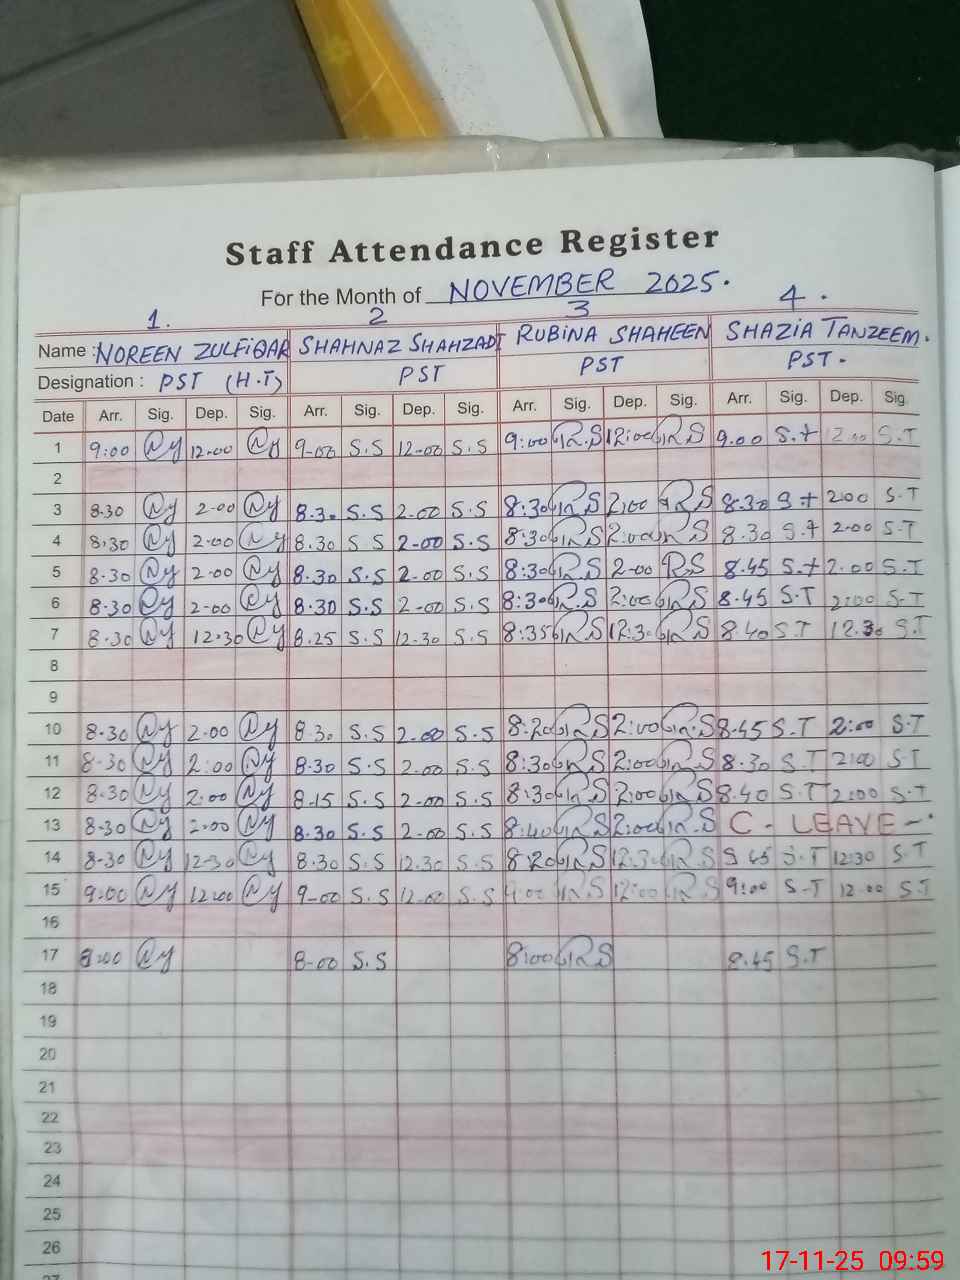 Staff Attendance Register
For the Month of NOVEMBER 2025.
1. 2 3 4.
Name: NOREEN ZULFIQAR SHAHNAZ SHAHZADI RUBINA SHAHEEN SHAZIA TANZEEM.
Designation: PST (H.T) PST PST PST.
Date Arr. Sig. Dep. Sig. Arr. Sig. Dep. Sig. Arr. Sig. Dep. Sig. Arr. Sig. Dep. Sig.
1 9:00 Ny 12.00 Ny 9-00 S.S 12-00 S.S 9:00 R.S 12:00 R.S 9.00 S.t 12.00 S.T
2
3 8.30 Ny 2-00 Ny 8.30 S.S 2-00 S.S 8:30 R.S 2:00 R.S 8.30 S.t 2:00 S.T
4 8.30 Ny 2.00 Ny 8.30 S.S 2-00 S.S 8:30 R.S 2:00 R.S 8.30 S.t 2.00 S.T
5 8.30 Ny 2-00 Ny 8.30 S.S 2-00 S.S 8:30 R.S 2-00 R.S 8.45 S.t 2.00 S.T
6 8.30 Ny 2-00 Ny 8.30 S.S 2-00 S.S 8:30 R.S 2:00 R.S 8.45 S.T 2:00 S.T
7 8.30 Ny 12.30 Ny 8.25 S.S 12.30 S.S 8:35 R.S 12:30 R.S 8.40 S.T 12.30 S.T
8
9
10 8.30 Ny 2.00 Ny 8.30 S.S 2.00 S.S 8:20 R.S 2:00 R.S 8.45 S.T 2:00 S.T
11 8-30 Ny 2:00 Ny 8.30 S.S 2-00 S.S 8:30 R.S 2:00 R.S 8.30 S.T 2:00 S.T
12 8.30 Ny 2:00 Ny 8.15 S.S 2-00 S.S 8:30 R.S 2:00 R.S 8.40 S.T 2:00 S.T
13 8.30 Ny 2.00 Ny 8.30 S.S 2-00 S.S 8:40 R.S 2:00 R.S C - LEAVE -
14 8-30 Ny 12-30 Ny 8.30 S.S 12.30 S.S 8:20 R.S 12:30 R.S 45 S.T 12:30 S.T
15 9:00 Ny 12:00 Ny 9-00 S.S 12-00 S.S 9:00 R.S 12:00 R.S 9:00 S-T 12.00 S.T
16
17 8:00 Ny 8-00 S.S 8:00 R.S 8.45 S.T
18
19
20
21
22
23
24
25
26
27
17-11-25 09:59